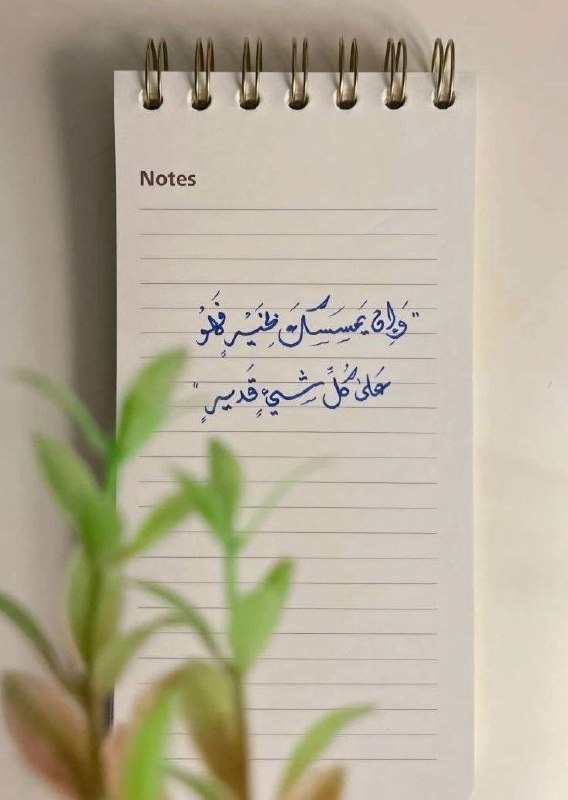 Notes
"وَإِن يَمسَسكَ بِخَيرٍ فَهُوَ
عَلىٰ كُلِّ شَيءٍ قَديرٍ"